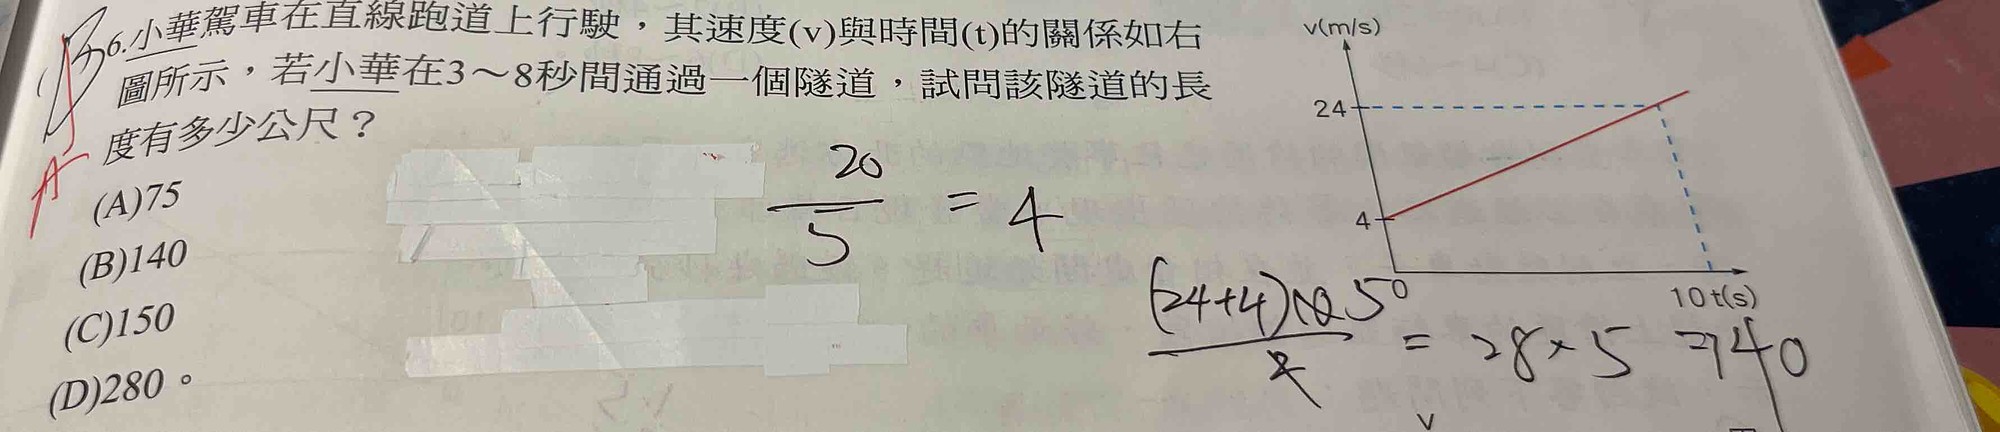 6.小華駕車在直線跑道上行駛，其速度(v)與時間(t)的關係如右
圖所示，若小華在3～8秒間通過一個隧道，試問該隧道的長
度有多少公尺？
(A)75
(B)140
(C)150
(D)280。
A
20
5
= 4
v(m/s)
24
4
0
10 t(s)
= 28×5 = 140
v